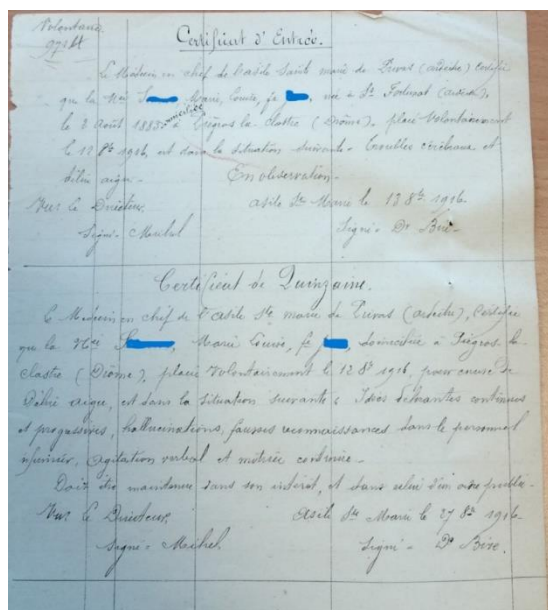 Volontaire
Certificat d'Entrée.
Le Médecin en chef de l'asile Sainte marie de Privas (ardèche) certifie
que la Mme S Marie, Louise, fe, née à St Fortunat (ardèche),
le 2 Août 1883 domiciliée à Piégros la Clastre (Drôme), placée Volontairement
le 12 8b 1916 est dans la situation suivante : Troubles cérébraux et
délire aigu. En observation.
Vu : le Directeur. asile Ste Marie le 12 8b 1916.
Signé : Michel Signé : Dr Bire.
Certificat de Quinzaine.
Le Médecin en chef de l'asile Ste marie de Privas (ardèche), Certifie
que la Mme S, Marie Louise, fe, domiciliée à Piégros la
Clastre (Drôme), placée Volontairement le 12 8b 1916, pour cause de
Délire aigu, est dans la Situation suivante : Idées délirantes continues
et progressives, hallucinations, fausses reconnaissances dans le personnel
infirmier, agitation verbal et motrice continue.
Doit être maintenue dans son intérêt, et dans celui d'un ordre
Vu : le Directeur. asile Ste Marie le 27 8b 1916.
Signé : Michel. Signé : Dr Bire.